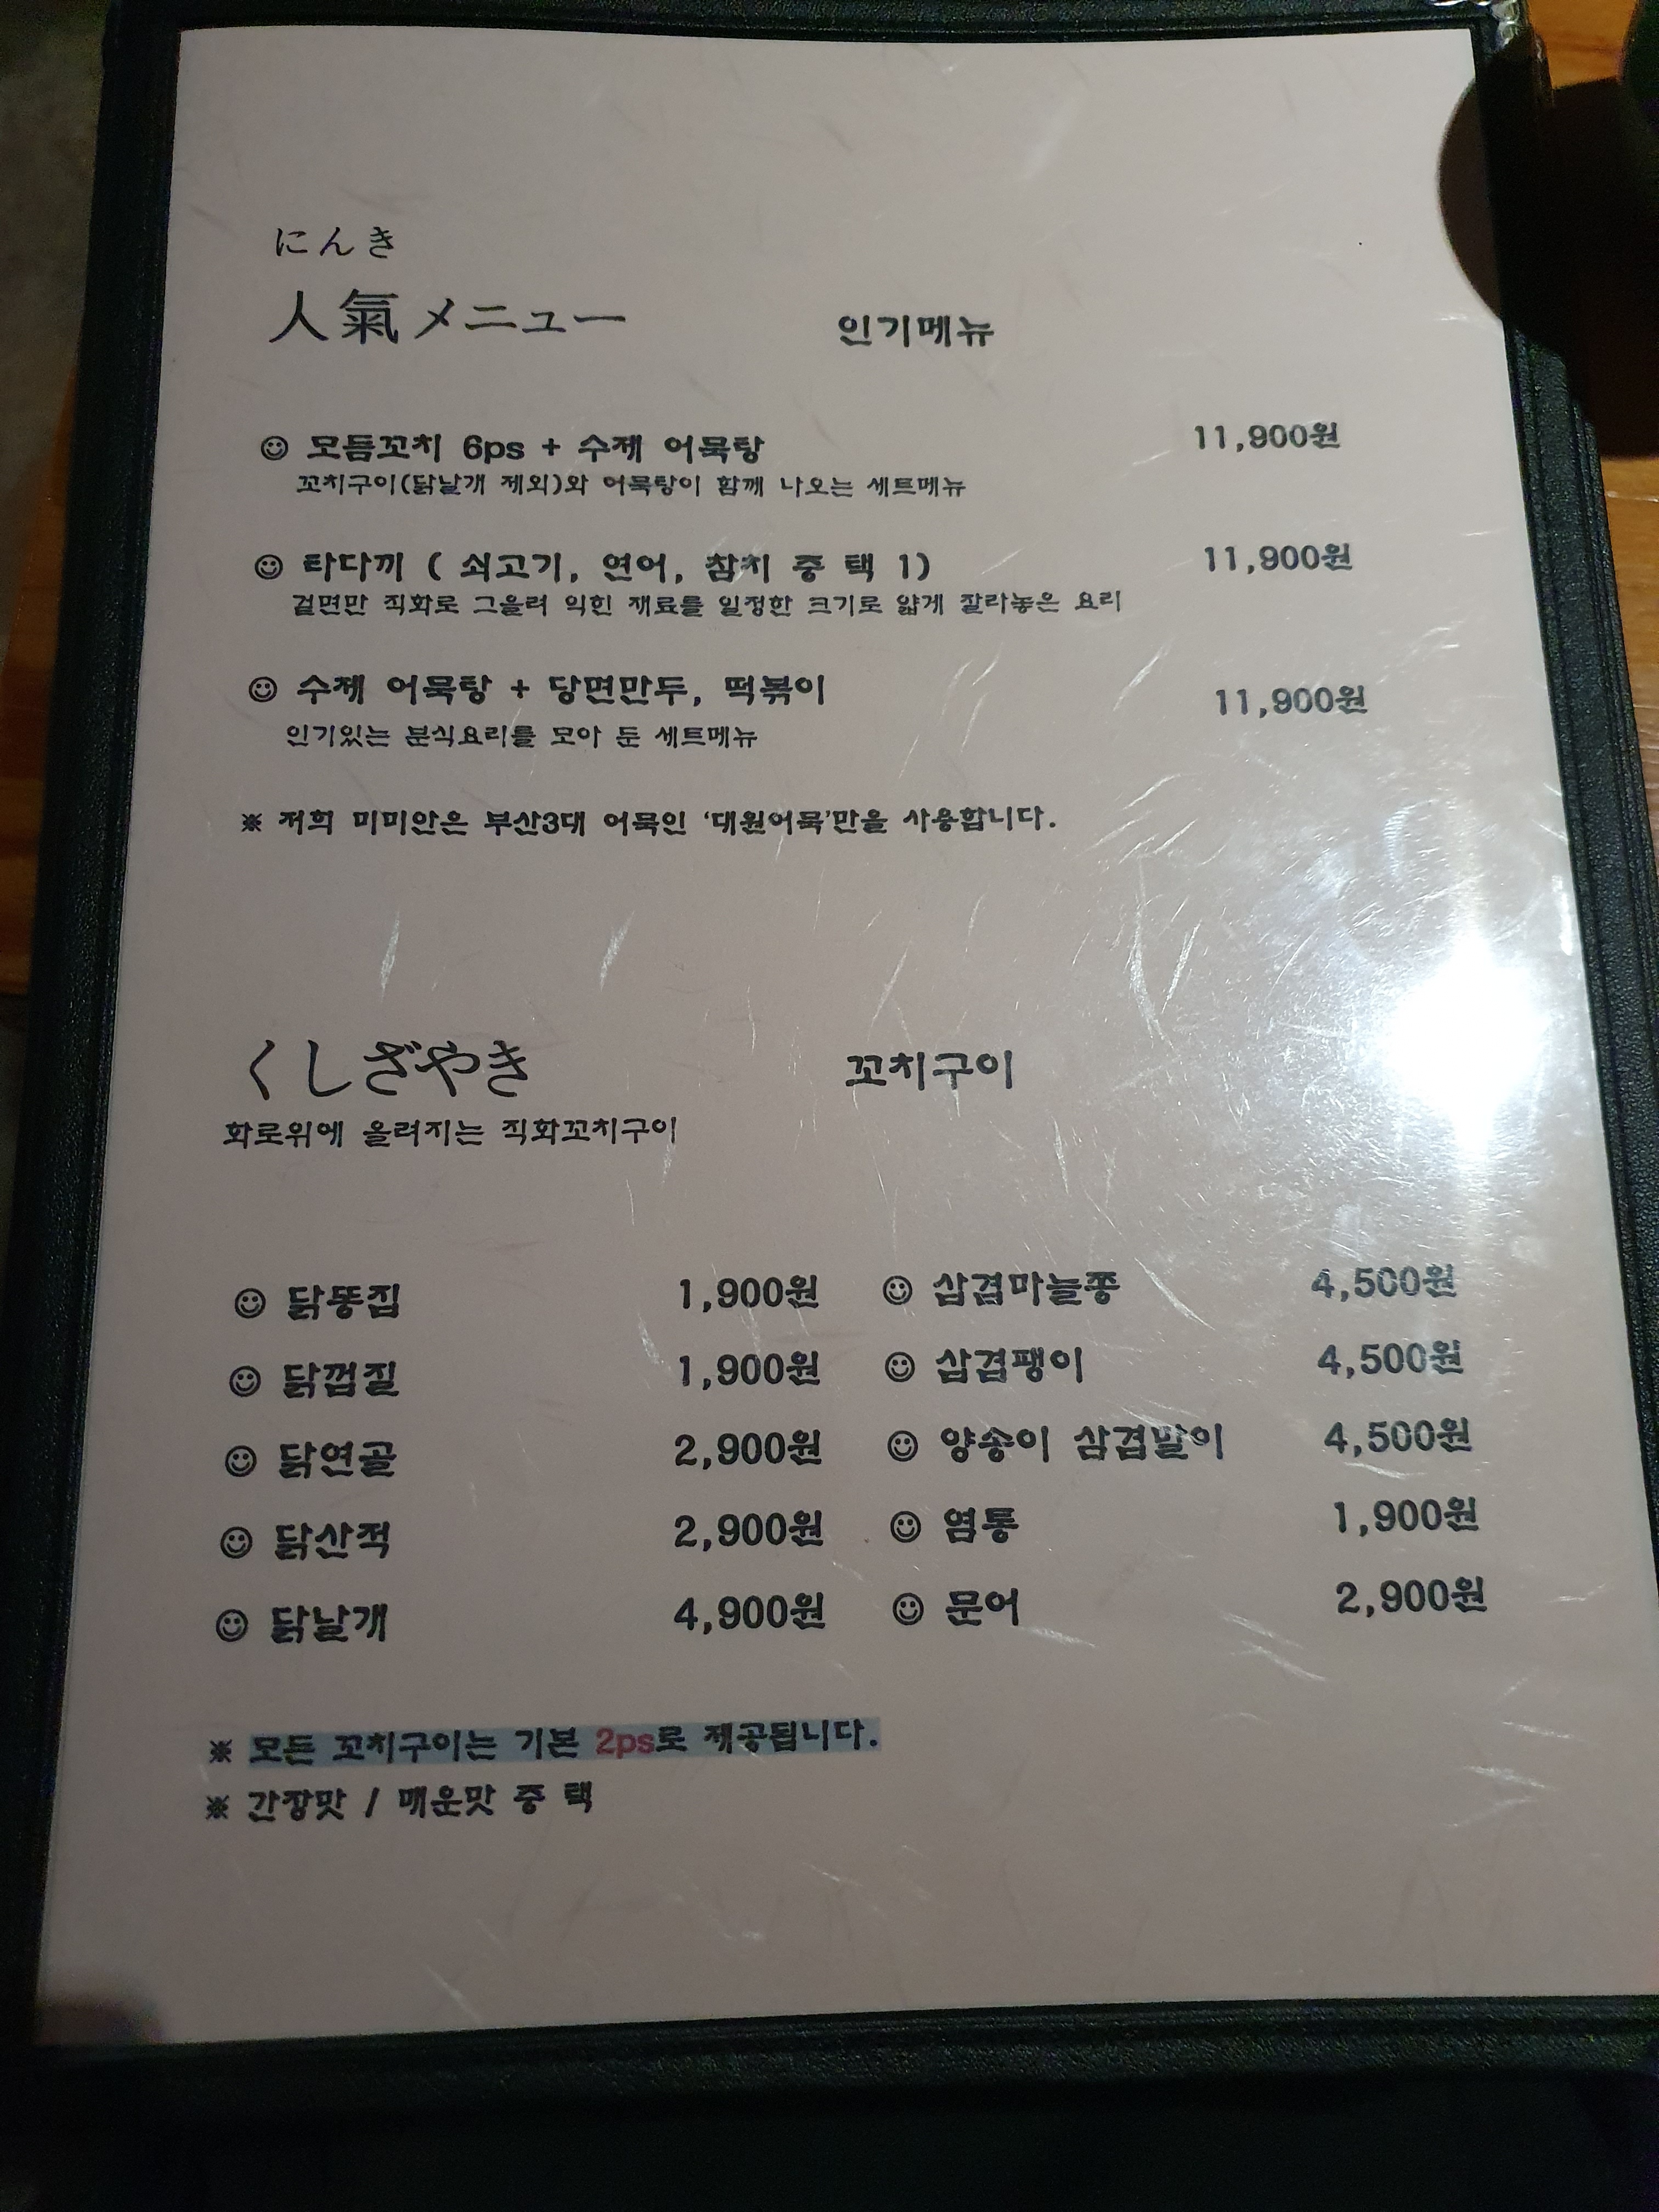 にんき
人氣メニュー 인기메뉴
☺ 모듬꼬치 6ps + 수제 어묵탕 11,900원
꼬치구이(닭날개 제외)와 어묵탕이 함께 나오는 세트메뉴
☺ 타다끼 ( 쇠고기, 연어, 참치 중 택 1) 11,900원
겉면만 직화로 그을려 익힌 재료를 일정한 크기로 얇게 잘라놓은 요리
☺ 수제 어묵탕 + 당면만두, 떡볶이 11,900원
인기있는 분식요리를 모아 둔 세트메뉴
※ 저희 미미안은 부산3대 어묵인 '대원어묵'만을 사용합니다.
くしざやき 꼬치구이
화로위에 올려지는 직화꼬치구이
☺ 닭똥집 1,900원 ☺ 삼겹마늘쫑 4,500원
☺ 닭껍질 1,900원 ☺ 삼겹팽이 4,500원
☺ 닭연골 2,900원 ☺ 양송이 삼겹말이 4,500원
☺ 닭산적 2,900원 ☺ 염통 1,900원
☺ 닭날개 4,900원 ☺ 문어 2,900원
※ 모든 꼬치구이는 기본 2ps로 제공됩니다.
※ 간장맛 / 매운맛 중 택